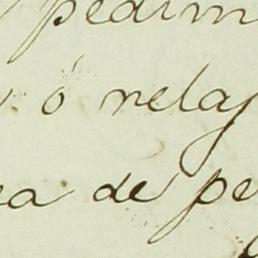 pedim
ó relaj
ea de pe